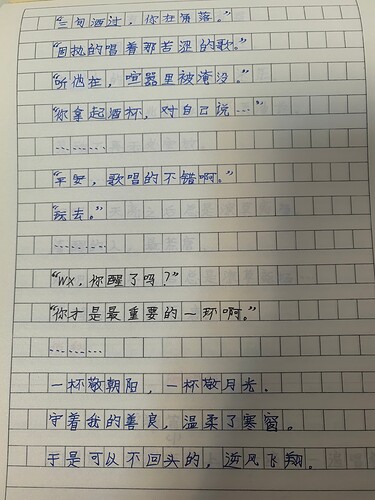 “三旬酒过，你在角落。”
“固执的唱着那苦涩的歌。”
“听他在，喧嚣里被淹没。”
“你拿起酒杯，对自己说……”
…………
“平安，歌唱的不错啊。”
“玩去。”
…………
“WX，你醒了吗？”
“你才是最重要的一环啊。”
…………
一杯敬朝阳，一杯敬月光。
守着我的善良，温柔了寒窗。
于是可以不回头的，逆风飞翔。